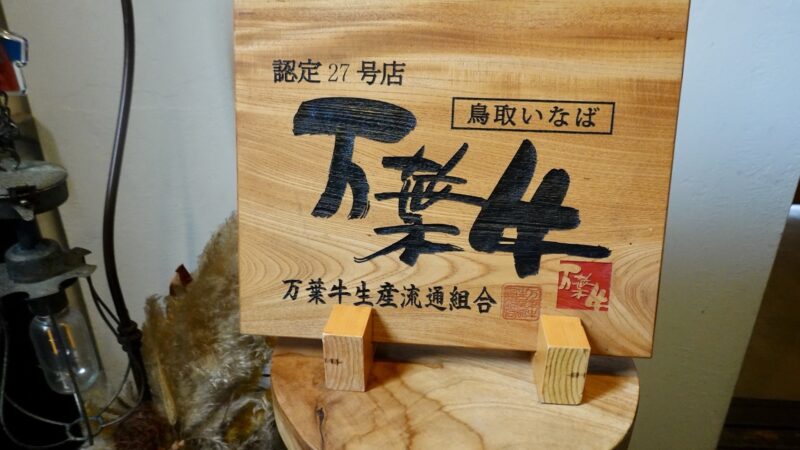 認定27号店
鳥取いなば
万葉牛
万葉牛生産流通組合
万葉牛